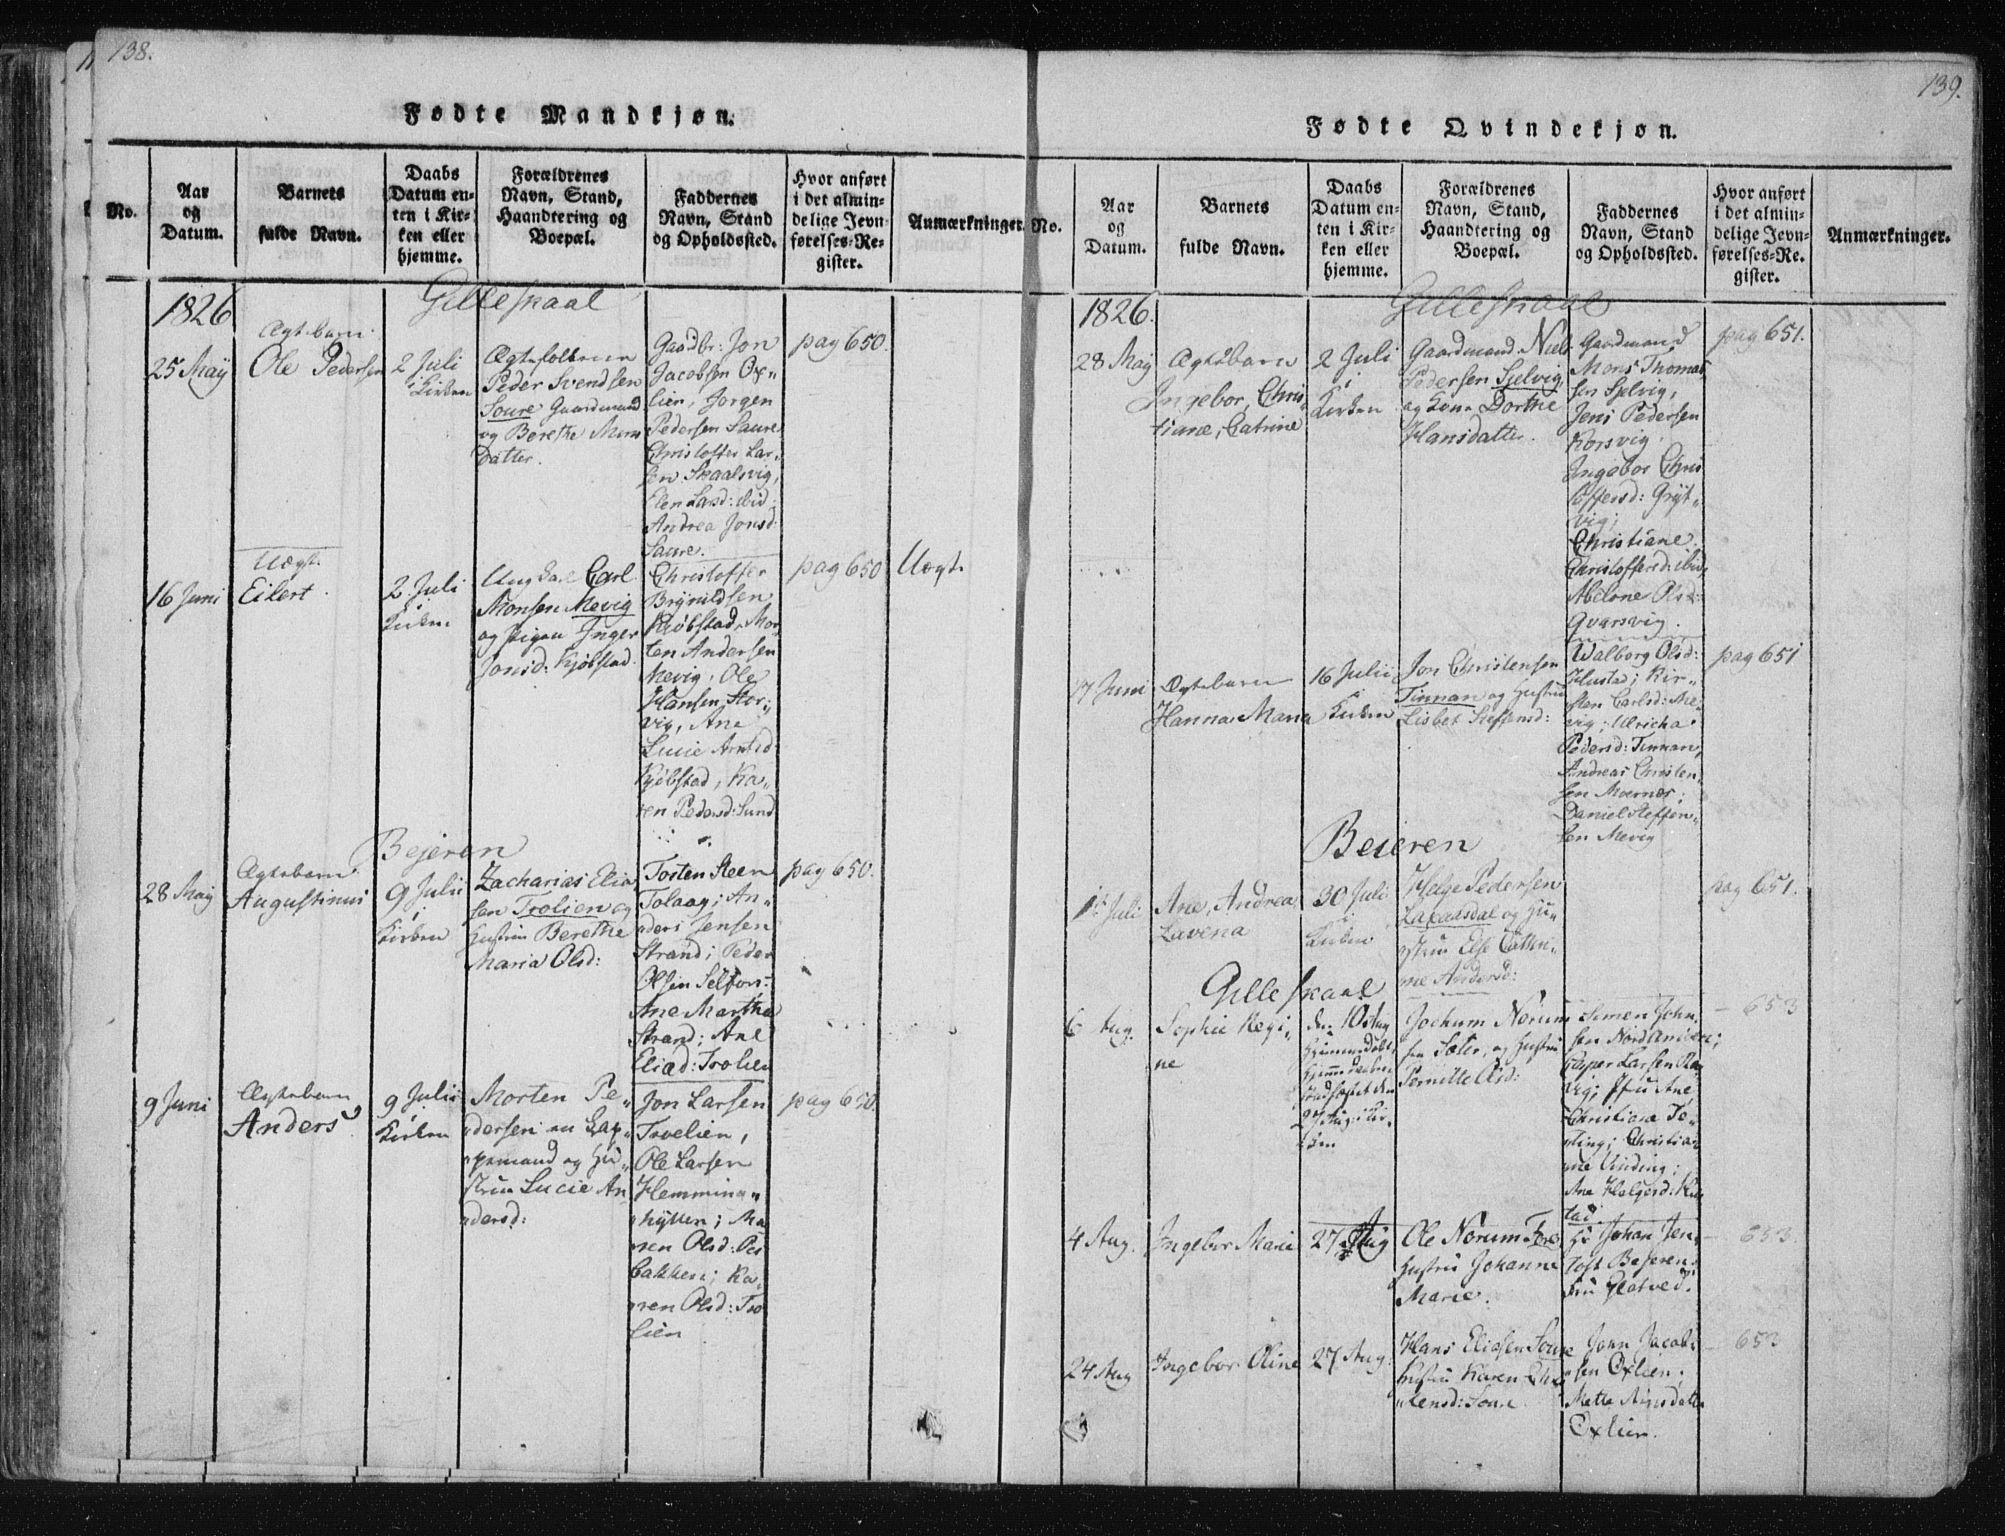 138.
Fødte Mandkjøn.
No.
Aar
og
Datum.
Barnets
fulde Navn.
Daabs
Datum en-
ten i Kir-
ken eller
hjemme.
Forældrenes
Navn, Stand,
Haandtering og
Boepæl.
Faddernes
Navn, Stand
og Opholdssted.
Hvor anført
i det almin-
delige Jevn-
førelses-Re-
gister.
Anmærkninger.
1826
Gilleskaal
25 Maÿ
Ægtebarn
Ole Pedersen
2 Juli
i Kirken
Ægtefolkene
Peder Svendsen
Soure Gaardmand
og Berethe Mons
Datter.
Gaadbr: Jon
Jacobsen Ox„
lien, Jorgen
Pedersen Saure
Christoffer Lar„
sen Skaalsvig,
Elen Larsd: ibid
Andrea Jonsd:
Saure.
pag 650.
16 Juni
Uægt.
Eilert.
2 Juli
i Kirken
Ung Karl Carl
Monsen Mevig
og Pigen Inger
Jonsd: Kjøbstad.
Christoffer
Brÿnildsen
Kjøbstad, Mor„
ten Andersen
Mevig, Ole
Hansen Stor„
vig, Ane
Lucie Arntsd:
Kjøbstad, Ka„
ren Pedersd: Sund
pag 650
Uægt.
Bejeren
28 Maÿ
Ægtebarn
Augustinus
9 Julii
i
Kirken
Zacharias Elia
sen Trolien og
Hustru Berethe
Maria Olsd:
Tosten Steen
Tolaag; An„
ders Jensen
Strand; Peder
Olsen Selfors:
Ane Martha
Strand; Ane
Eliad: Trolien
pag 650.
9 Juni
Ægtebarn
Anders
9 Julii
Kirken
Morten Pe„
dersen en Lap„
pemand og Hu„
stru Lucie An
dersd:
Jon Larsen
Troelien,
Ole Larsen
Hemming„
hÿtten; Ma
ren Olsd:
bakken; Ka„
ren Olsd: Tro
lien
pag 650.
139.
Fødte Qvindekjøn.
No.
Aar
og
Datum.
Barnets
fulde Navn.
Daabs
Datum en-
ten i Kir-
ken eller
hjemme.
Forældrenes
Navn, Stand,
Haandtering og
Boepæl.
Faddernes
Navn, Stand
og Opholdssted.
Hvor anført
i det almin-
delige Jevn-
førelses-Re-
gister.
Anmærkninger.
1826.
Gilleskaal
28 Maÿ
Ægtebarn
Ingebor, Chris„
tiane, Catrine
2 Juli
i
Kirken
Gaardmand Niels
Pedersen Sjelvig
og Kone Dorthe
Hansdatter.
Gaardmand
Mons Thomas
sen Sjelvig,
Jens Pedersen
Korsvig,
Ingebor Chris
toffersd: Grÿt„
vig;
Christiane
Christoffersd: ibid,
Abelone Olsd:
Qvarsvig.
pag 651.
17 Juni
Ægtebarn
Hanna Maria
16 Julii
Kirken
Jon Christensen
Tinnan og Hustru
Lisbet Steffensd:
Walborg Olsd:
Hustad; Kir„
sten Carlsd: Me„
vig; Ulricha
Pedersd: Tinnan,
Andreas Christen„
sen Moernes;
Daniel Steffen„
sen Mevig
pag 651
Beieren
1st Juli
Ane, Andrea
Lavena
30 Juli
i
Kirken
Helge Pedersen
Laxaasdal og Hu„
stru Else Cathri„
ne Andersd:
pag 651.
Gilleskaal
6 Aug.
Sophie Regi„
ne
den 10 Aug
Hjemmedøbt,
Hjemmedaaben
stadfæstet den
27 Aug: i Kir„
ken
Jochum Norum
Sæter, og Hustru
Pernille Olsd:
Simen John„
sen Nordlander;
Casper Larsen
vig; Ane
Christiana Te„
sting; Christia„
ne Vinding;
Ane Helgesd: Hu
stad
653
4 Aug.
Ingebor Marie
27 Aug
Ole Norum Fore
Hustru Johanne
Marie.
Hr Johan Jen„
toft Bejeren
653.
24 Aug
Ingebor Oline
27 Aug:
Hans Eliasen Soure
Hustru Karen
tensd: Soure
John Jacob„
sen Oxlien;
Mette
Oxlien.
653